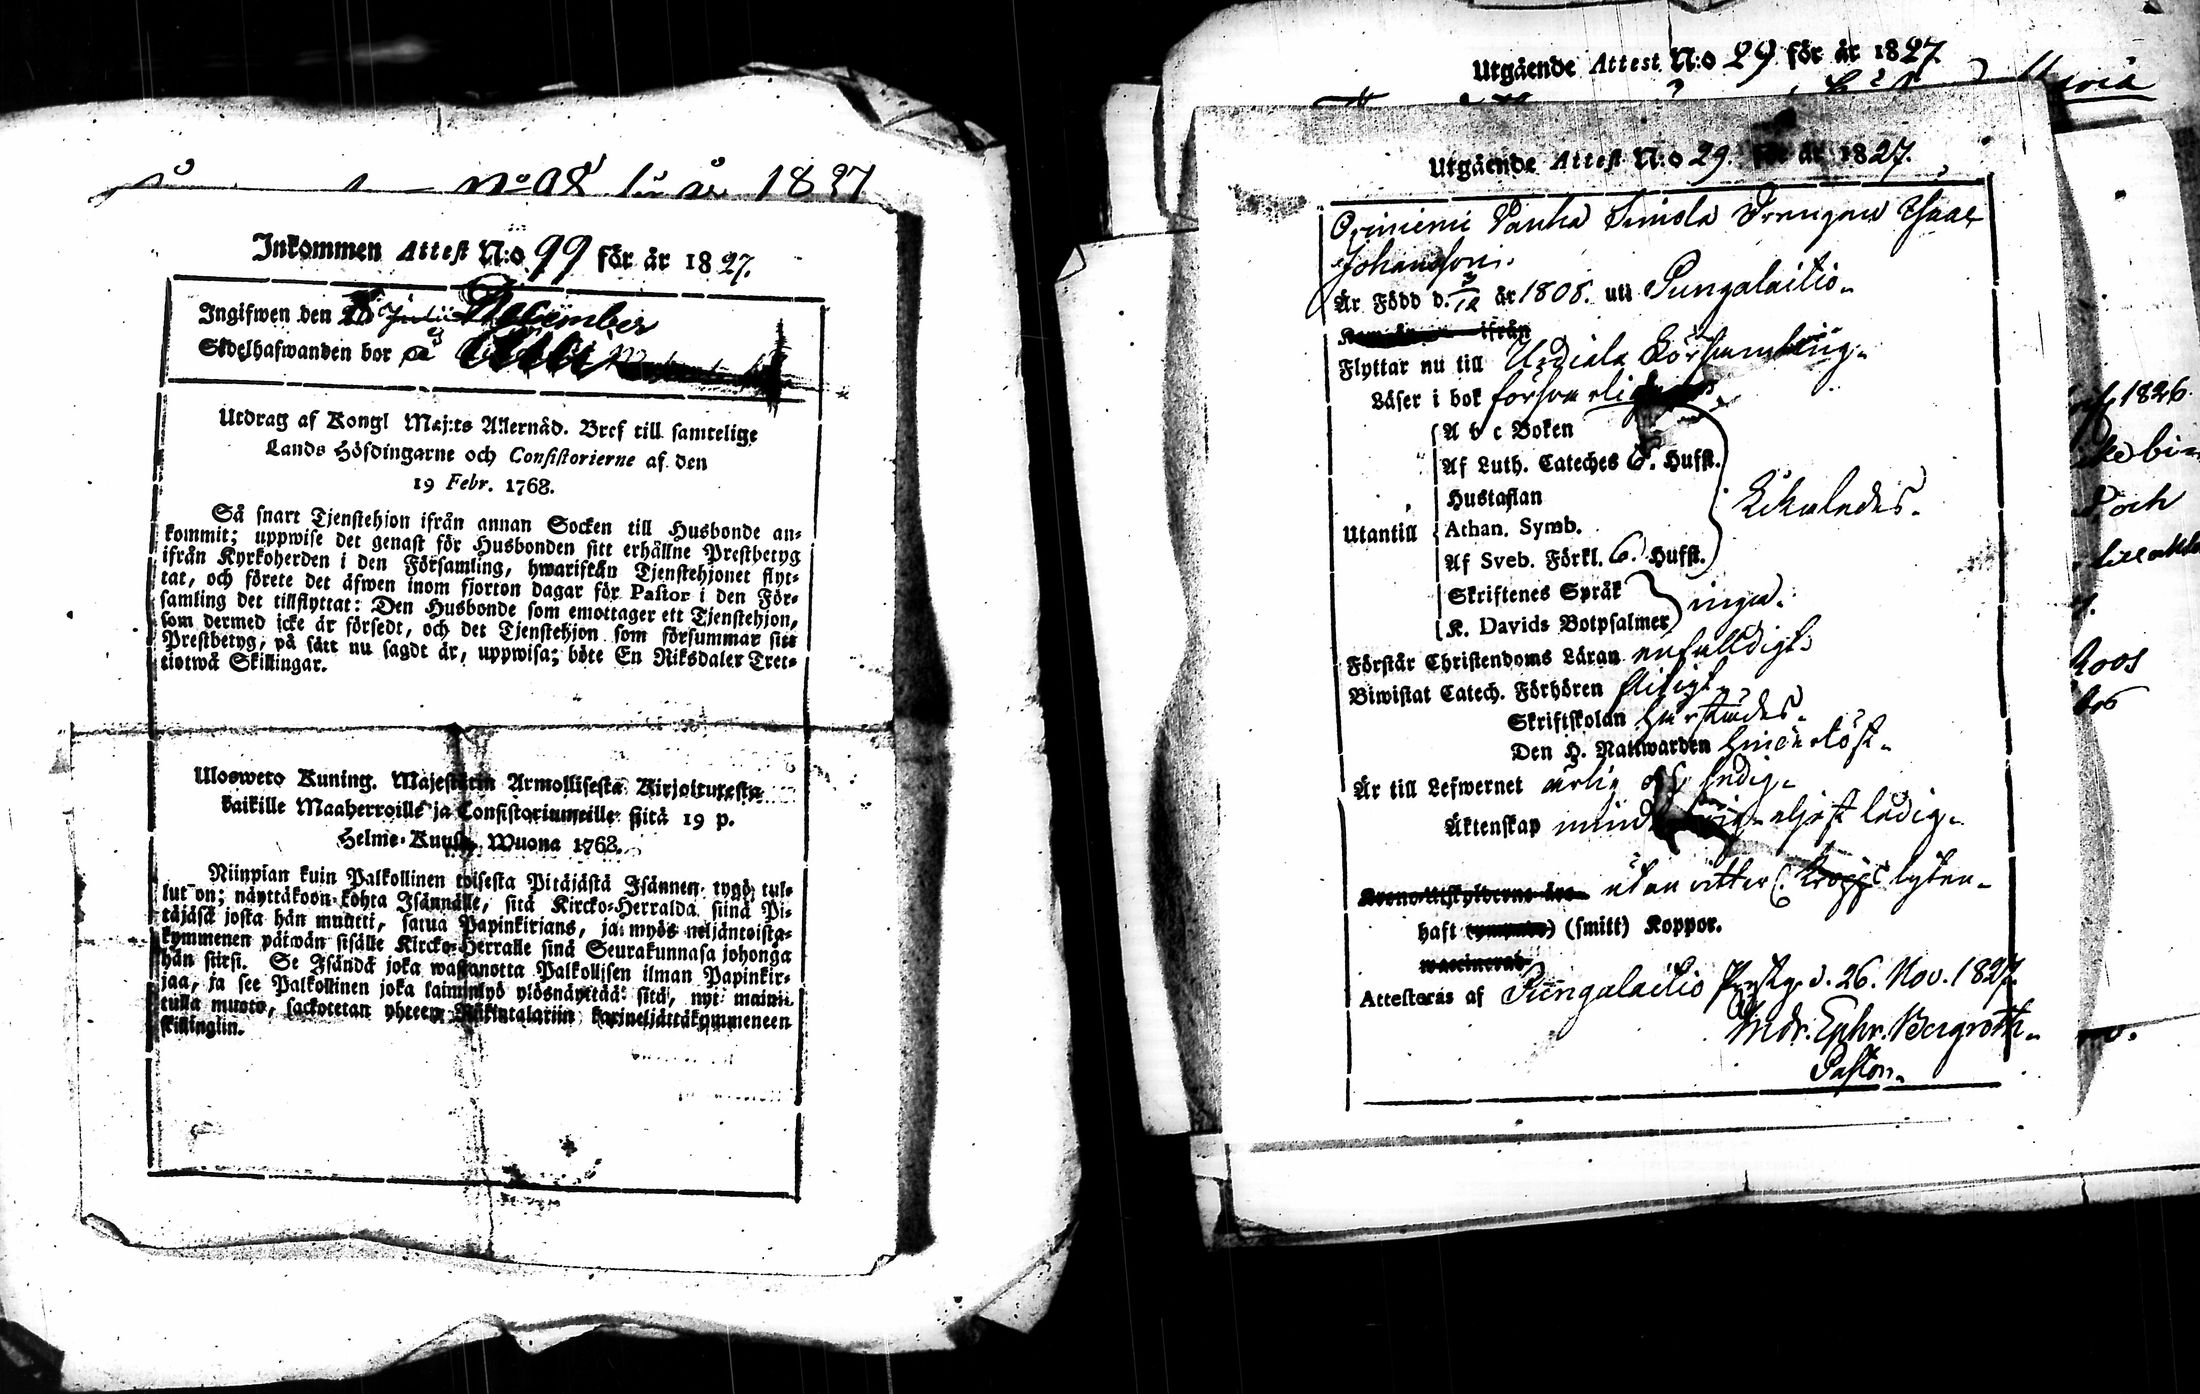 N:o 98 för år 1827
Inkommen Attest N:o 99 för år 1827.
Ingifwen den December
Sedelhafwanden bor på
Utdrag af Kongl Maj:ts Allernåd. Bref till samtelige
Lands Höfdingarne och Consistorierne af den
19 Febr. 1768.
Så snart Tjenstehjon ifrån annan Socken till Husbonde an-
kommit; uppwise det genast för Husbonden sitt erhållne Prestbetyg
ifrån Kyrkoherden i den Församling, hwarifrån Tjenstehjonet flyt-
tat, och förete det äfwen inom fjorton dagar för Pastor i den För-
samling det tillflyttat: Den Husbonde som emottager ett Tjenstehjon,
som dermed icke är försedt, och det Tjenstehjon som försummar sitt
Prestbetyg, på sätt nu sagdt är, uppwisa; böte En Riksdaler Tret-
tiotwå Skillingar.
Ulosweto Kuning. Majestetin Armollisesta Kirjoituresta
kaikille Maaherroille ja Consistoriumeille siitä 19 p.
Helme-Kuusa Wuona 1768.
Niinpian kuin Palkollinen toisesta Pitäjästä Isännen tygö tul-
lut on; näyttäkoon kohta Isännälle, sitä Kircko-Herralda siinä Pi-
täjäsä josta hän muutti, saatua Papinkirjans, ja myös neljäntoista-
kymmenen päiwän sisälle Kircko-Herralle sinä Seurakunnasa johonga
hän siirsi. Se Isändä joka wastanotta Palkollisen ilman Papinkir-
jaa, ja see Palkollinen joka laiminlyö ylösnäyttää sitä, nyt mainit-
tulla muoto, sackotetan yhteen Rikintalariin karineljättäkymmeneen
skillinglin.
Utgående Attest N:o 29 för år 1827.
Utgående Attest N:o 29. för år 1827.
Orinieni Vanha Simola Drengen Isaac
Johansson.
Är Född d. 3/12 år 1808. uti Pungalaitio.
Flyttar nu till Urdiala Församling.
Läser i bok försvarligt
A b c Boken
Af Luth. Cateches 6. Hufst.
Hustaflan
Utantill Athan. Symb. Likaledes.
Af Sveb. Förkl. 6. Hufst.
Skriftenes Språk
K. Davids Botpsalmer ingen.
Förstår Christendoms Läran enfaldigt
Biwistat Catech. Förhören flitigt.
Skriftskolan härstädes.
Den H. Nattwarden hinderlöst.
Är till Lefwernet ärlig och ledig.
Äktenskap ledig.
utan witter. kropps lyten.
haft (smitt) Koppor.
Attesteras af Pungalaitio Prestg. d. 26. Nov. 1827.
Andr. Ephr. Bergroth.
Pastor.
1826.
och